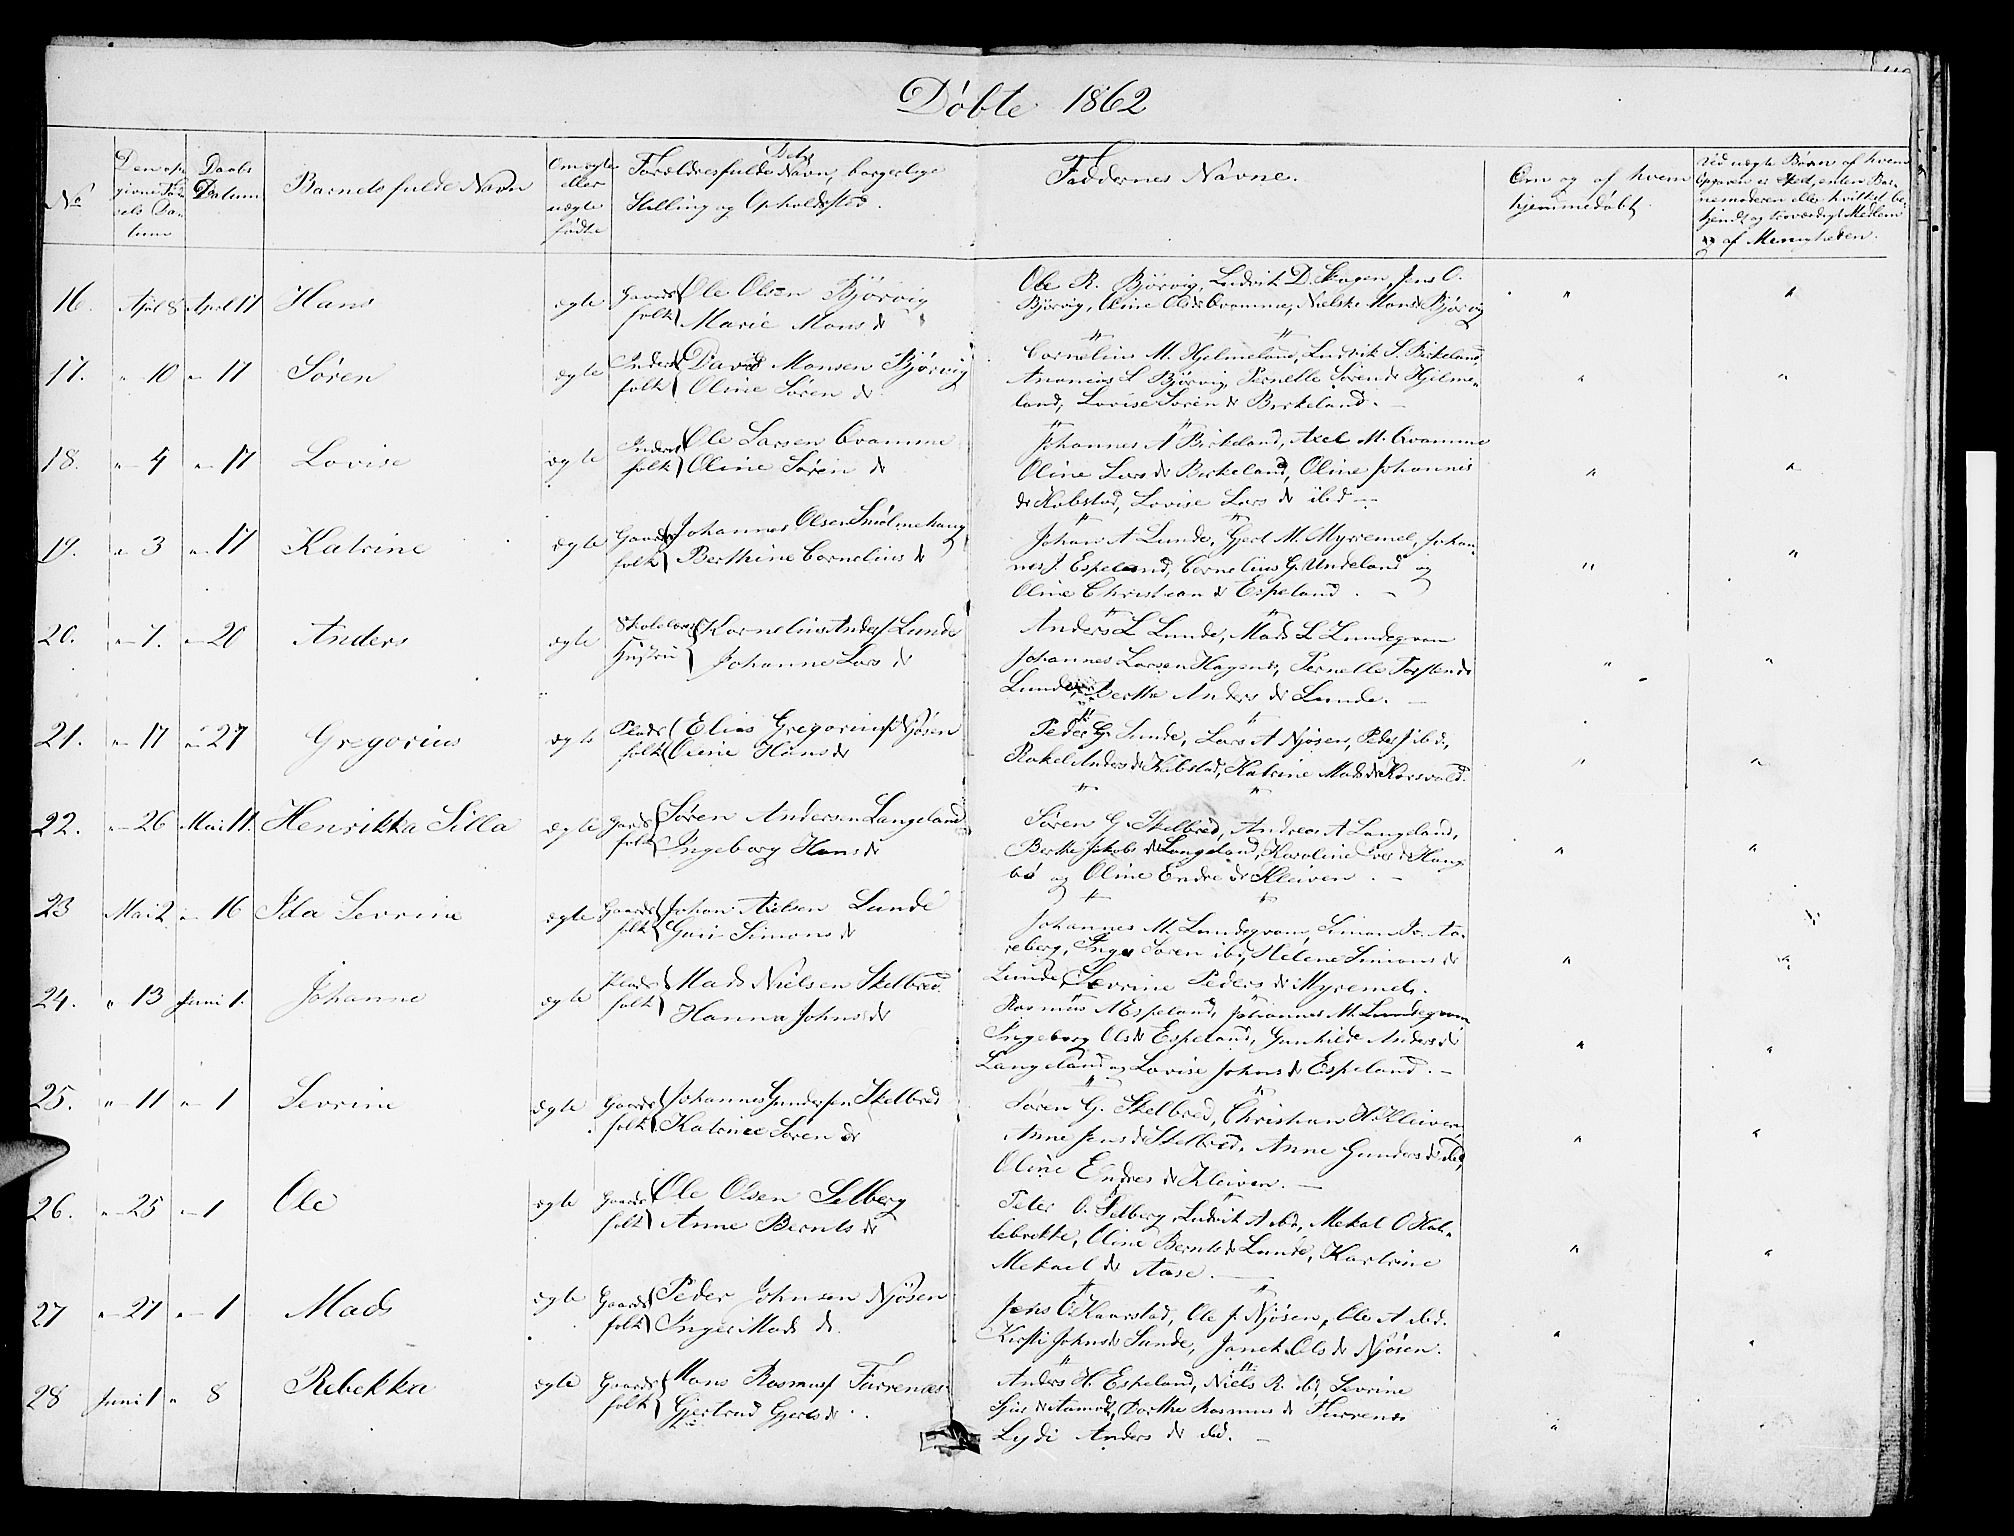 Døbte 1862
No
Den op-
givne Fød-
sels Da-
tum
Daabs
Datum
Barnets fulde Navn
Om ægte
eller
uægte
fødte
Forældres fulde Navn, borgerlige
Stilling og Opholdssted.
Faddernes Navne.
Om og af hvem
hjemmedøbt
Ved uægte Børn af hvem
Opgaven er skeet, enten Bar-
nemoderen eller hvilket be-
kjendt og troværdigt Medlem
af Menigheden.
16. April 8 April 17 Hans ægte Gaards folk Ole Olsen Bjørvig
Marie Mons dr
Ole R. Bjørvig, Ludvik D. Skagen, Jens O.
Bjørvig, Oline Ols dr Qvamme, Nielske Mons dr Bjørvig
17. " 10 " 17 Søren ægte Inderst folk David Monsen Bjørvig
Oline Søren dr
Cornelius M. Hjelmeland, Ludvik S. Birkeland,
Ananias S Bjørvig, Pernelle Søren dr Hjelme-
land, Lovise Søren dr Birkeland. —
18. " 4 " 17 Lovise ægte Inderst folk Ole Larsen Qvamme
Oline Søren dr
Johannes A Birkeland, Axel M. Qvamme
Oline Lars dr Birkeland, Oline Johannis
dr Kobstad, Lovise Lars dr ibid —
19. " 3 " 17 Katrine ægte Gaards folk Johannes Olsen
Berthine Cornelius dr
Johan A Lunde, Gjert M. Myremel, Johan-
nes J. Espeland, Cornelius G. Undeland og
Oline Christian dr Espeland. —
20. " 7. " 20 Anders ægte Hustru Kornelius Anders Lunde
Johanne Lars dr
Anders L Lunde, Mads L Lundegram
Johannes Larsen Hagen, Pernelle Torsten dr
Lunde, Berthe Anders dr Lunde. —
21. " 17 " 27 Gregorius ægte Plads folk Elias Gregorius Njøsen
Oline Hans dr
Peder G. Lunde, Lars A Njøsen, Peder J ibid,
Rakel Anders dr Kibstad, Katrine Mads dr Korsvold.
22. " 26 Mai 11. Henrikka Silla ægte Gaards folk Søren Andersen Langeland
Ingeborg Hans dr
Søren G. Skelbred, Andreas A Langeland,
Berthe Jakobs dr Langeland, Karoline dr Haug-
bø og Oline Endre dr Kleiven. —
23 Mai 2 " 16 Ida Sevrine ægte Gaards folk Johan Axelsen Lunde
Guri Simons dr
Johannes M. Lundegram, Simon Aa-
reberg, Inger Søren ib., Helene Simons dr
Lunde, Sevrine Peders dr Myremels.
24. " 13 Juni 1. Johanne ægte Plads folk Mads Nielsen Skelbred
Hanna Johns dr
Rasmus A Espeland, Johannes M. Lundegram
Ingeborg Ols dr Espeland, Gunhilde Anders dr
Langeland og Lovise Johns dr Espeland. —
25. " 11 " 1 Sevrine ægte Gaards folk Johannes Gundersen Skelbred
Katrine Søren dr
Søren G. Skelbred, Christian H Kleiven,
Anne Jens dr Skelbred, Anne Gunders dr ibid,
Oline Endres dr Kleiven. —
26. " 25 " 1 Ole ægte Gaards folk Ole Olsen Selberg
Anne Bernts dr
Peter O. Selberg, Ludvik A ibd, Mekal O Hal-
lebrette, Oline Bernts dr Lunde, Kartrine
Mekael dr Aase. —
27 " 27 " 1 Mads ægte Gaards folk Peder Johnsen Njøsen
Inger Mads dr.
Jens O. Kaarstad, Ole J. Njøsen, Ole A ibd.
Kirsti Johns dr Sunde, Janek Ols dr Njøsen.
28 Juni 1 " 8 Rebekka ægte Gaards folk Hans Rasmus Furrenæs
Gjertrud Gjerts dr.
Anders H. Espeland, Niels R. ibd, Sevrine
dr Aamot, Dorthe Rasmus dr Furrenes
Lydi Anders dr ibd. —